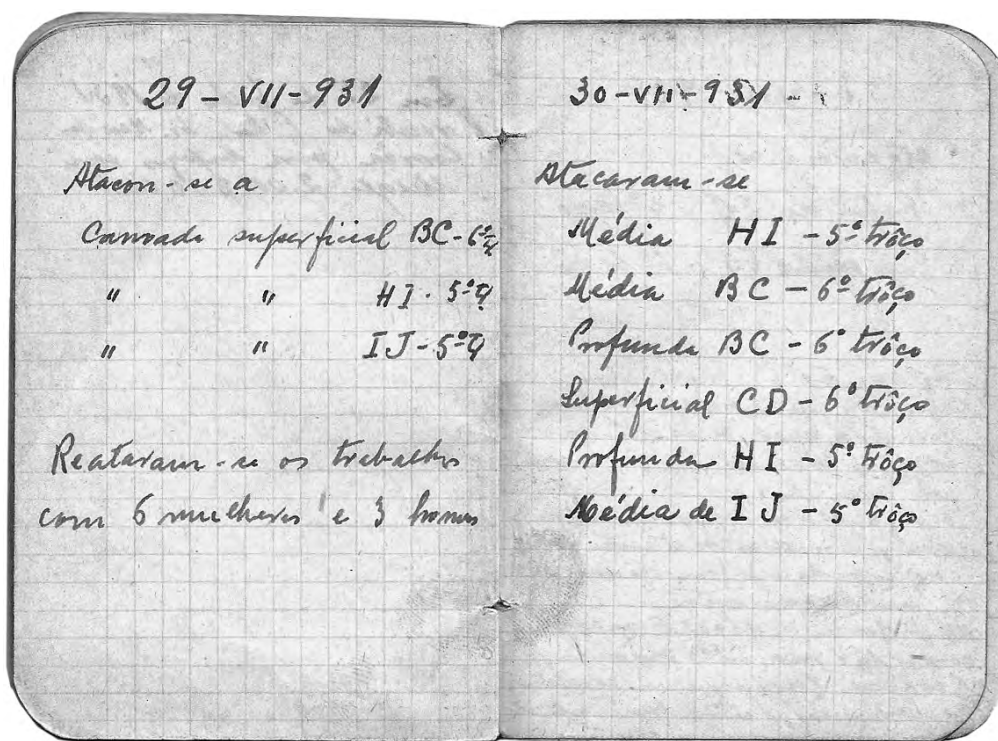 29 - VII - 931
Atacou-se a
Camada superficial BC - 6º T
" " HI - 5º T
" " IJ - 5º T
Reataram-se os trabalhos
com 6 mulheres e 3 homens
30 - VII - 931
Atacaram-se
Média HI - 5º trôço
Média BC - 6º trôço
Profunda BC - 6º trôço
Superficial CD - 6º trôço
Profunda HI - 5º trôço
Média de IJ - 5º trôço